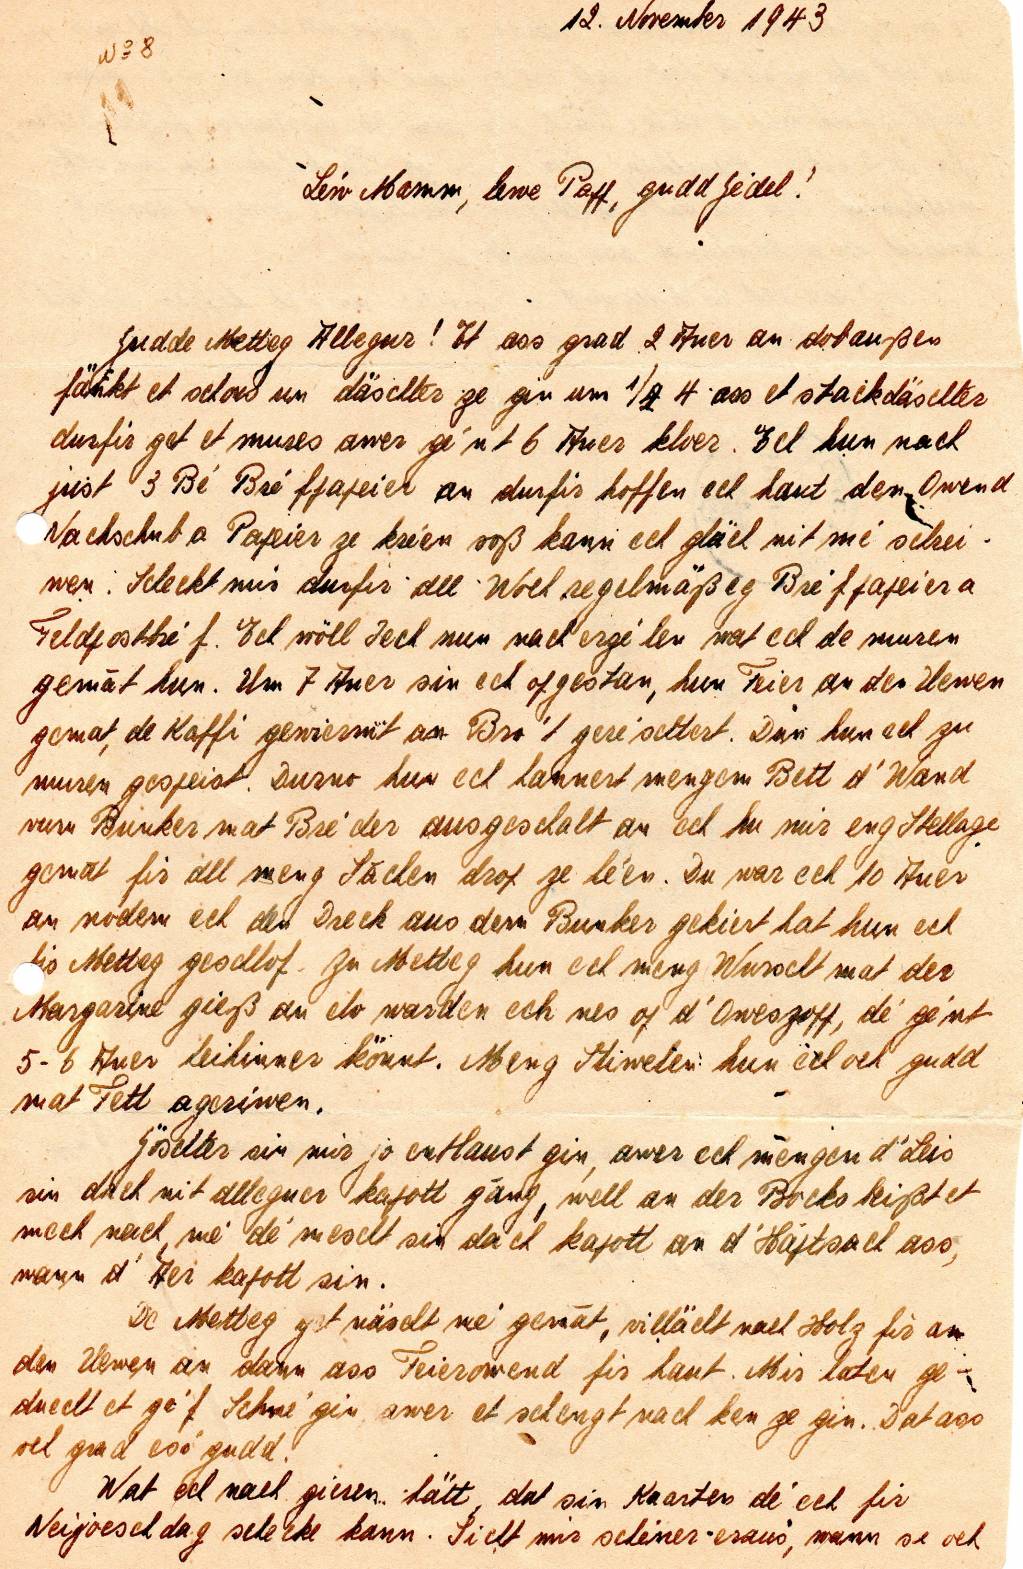 12. November 1943
No 8
Léiw Mamm, lewe Papp, gudd Jédel!
Gudde Metteg Allegur! Et ass grad 2 Auer an dobaußen
fänkt et schons un däschter ze gin um 1/2 4 ass et stackdäschter
durfir get et mures awer géint 6 Auer kloer. Ech hun nach
just 3 Bé Bréfpapeier an durfir hoffen ech haut den Owend
Nachschub a Papeier ze kréen soß kann ech gläch nit mé schrei-
wen. Scheckt mir durfir all Woch regelmäßeg Bréfpapeier a
Feldpostbréf. Ech wöll Iech nun nach erzélen wat ech de muren
gemāt hun. Um 7 Auer sin ech opgestan, hun Feier an den Uewen
gemat, de Kaffi gewiermt an Bro't geréschtert. Dun hun ech zu
muren gespeist. Durno hun ech hannert mengem Bett d'Wand
vum Bunker mat Bréder ausgeschalt an ech hu mir eng Stellage
gemāt fir all meng Sachen drop ze léen. Du war ech 10 Auer
an nodem ech den Dreck aus dem Bunker gekiert hat hun ech
bis Metteg geschlof. Zu Metteg hun ech meng Wurscht mat der
Margarine gieß an elo warden ech nes op d'Oweszopp, dé géint
5-6 Auer leihinner könnt. Meng Stiwelen hun ech och gudd
mat Fett ageriwen.
Göschter sin mir jo entlaust gin, awer ech mengen d'Leis
sin dach nit alleguer kapott gāng, well an der Bocks beißt et
mech nach, mé dé mescht sin dach kapott an d'Haptsach ass,
wann d'Aer kapott sin.
De Metteg get näscht mé gemāt, villächt nach Holz fir an
den Uewen an dann ass Feierowend fir haut. Mir haten ge-
duecht et géf Schné gin awer et schengt nach ken ze gin. Dat ass
och grad esó gudd.
Wat ech nach gieren hätt, dat sin Kaarten dé ech fir
Neijoeschdag schecke kann. Sicht mir schéiner eraus, wann se och